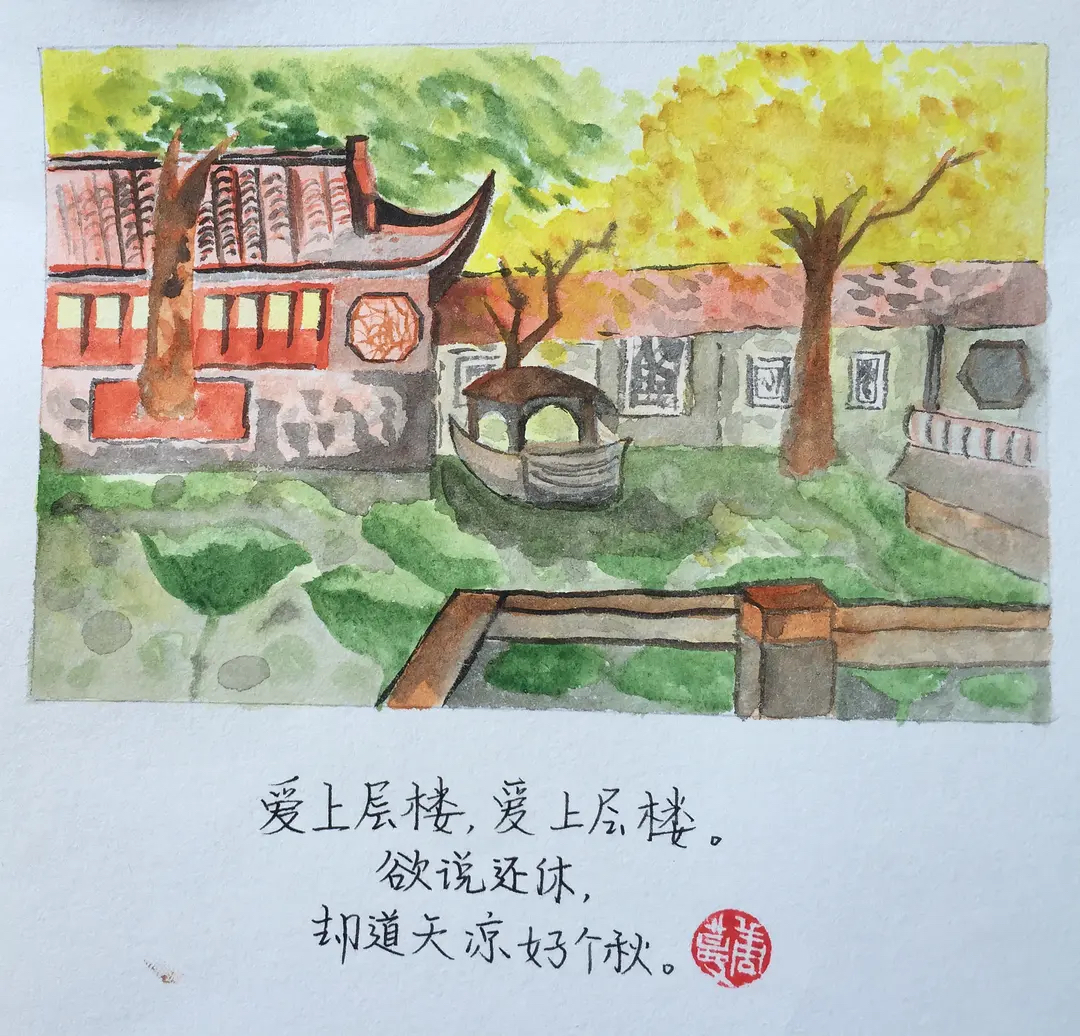 爱上层楼，爱上层楼。
欲说还休，
却道天凉好个秋。